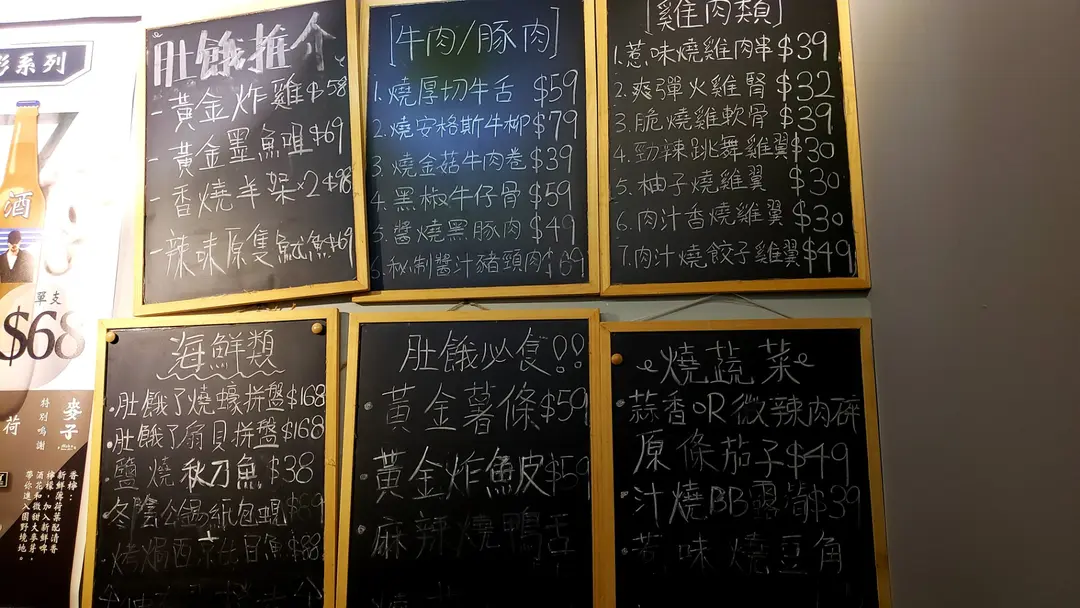 彩系列
酒
單支
$68
特別鳴謝
麥子
荷
肚餓推介
- 黃金炸雞 $58
- 黃金墨魚咀 $69
- 香燒羊架×2 $98
- 辣味原隻魷魚 $69
[牛肉/豚肉]
1. 燒厚切牛舌 $59
2. 燒安格斯牛柳 $79
3. 燒金菇牛肉卷 $39
4. 黑椒牛仔骨 $59
5. 醬燒黑豚肉 $49
6. 秘制醬汁豬頸肉 $69
[雞肉類]
1. 惹味燒雞肉串 $39
2. 爽彈火雞腎 $32
3. 脆燒雞軟骨 $39
4. 勁辣跳舞雞翼 $30
5. 柚子燒雞翼 $30
6. 肉汁香燒雞翼 $30
7. 肉汁燒餃子雞翼 $49
海鮮類
·肚餓了燒蠔拼盤 $168
·肚餓了扇貝拼盤 $168
·鹽燒秋刀魚 $38
·冬陰公錫紙包蜆
肚餓必食!!
黃金薯條 $59
黃金炸魚皮 $59
麻辣燒鴨舌
燒蔬菜
·蒜香OR微辣肉碎
原條茄子 $49
·汁燒BB露筍 $39
·惹味燒豆角